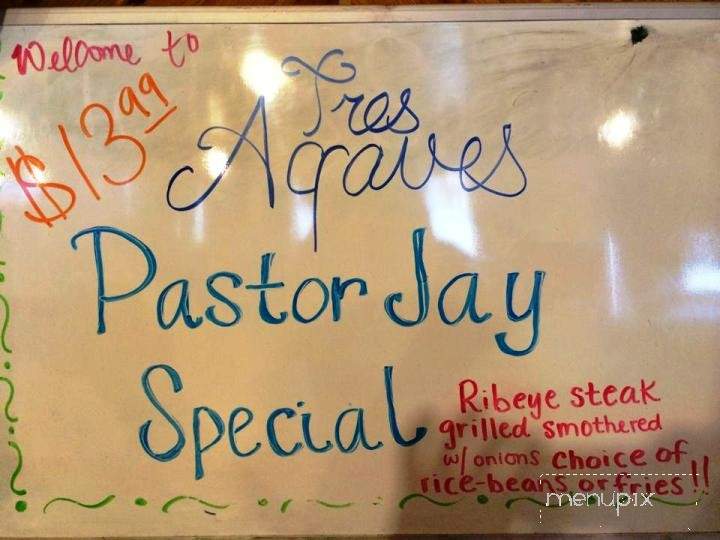 Welcome to
$13.99
Tres
Agaves
Pastor Jay
Special
Ribeye steak
grilled smothered
w/onions choice of
rice-beans or fries!!
menupix